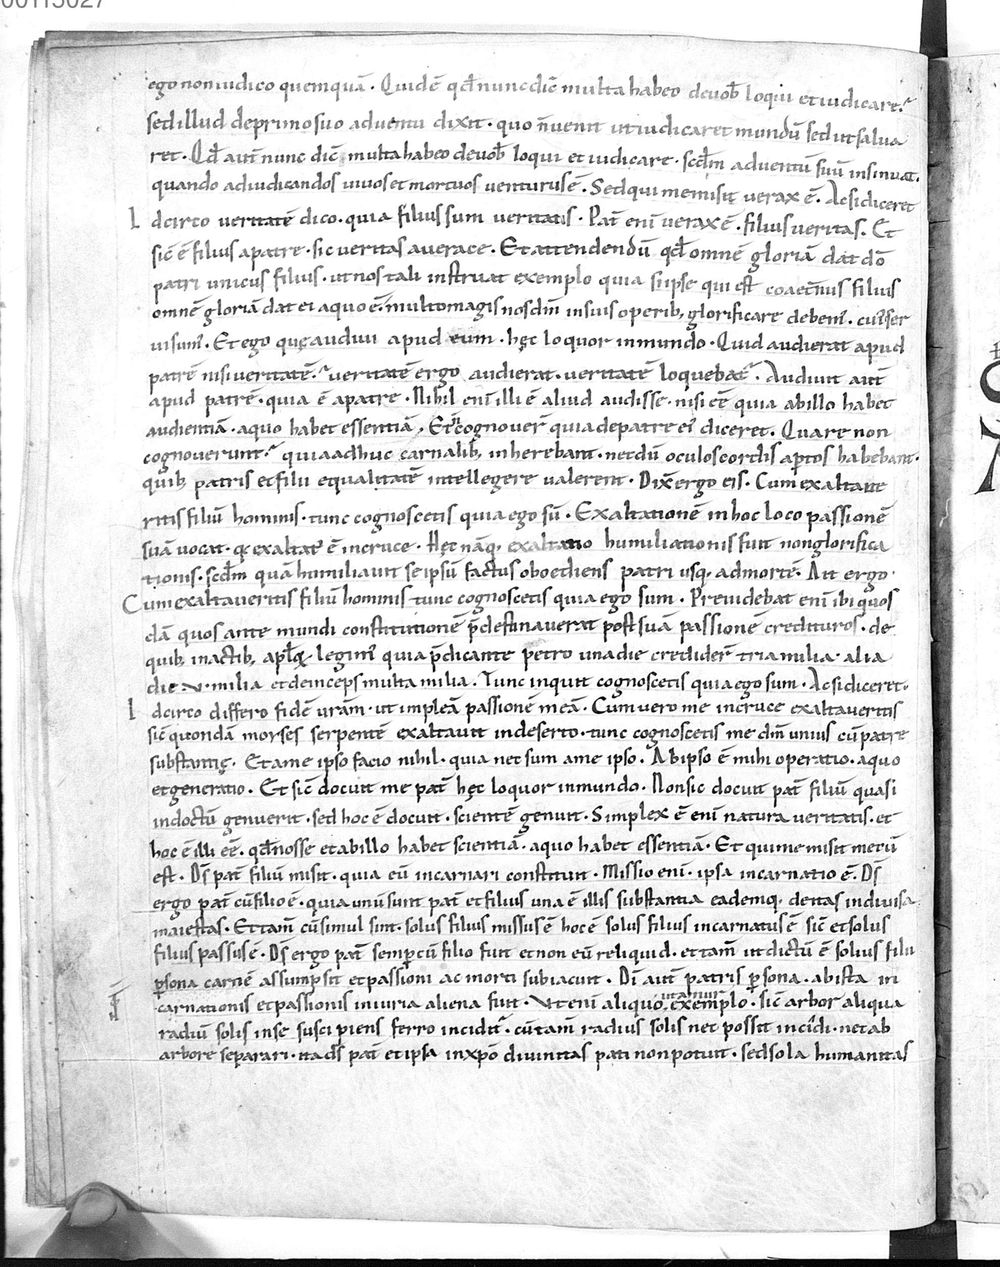 00115027
ego non iudico quemquā. Quidē qđ nunc dic̄ multa habeo de uob̄ loqui et iudicare.
sed illud de primo suo aduentu dixit. quo n̄ uenit ut iudicaret mundū sed ut salua
ret. Qđ aut̄ nunc dic̄ multa habeo de uob̄ loqui et iudicare. scd̄m aduentū suū insinuat.
quando ad iudicandos uiuos et mortuos uenturus ē. Sed qui me misit uerax ē. Ac si diceret
Idcirco ueritatē dico. quia filius sum ueritatis. Pat̄ eni uerax ē. filius ueritas. Et
sic̄ ē filius a patre. sic ueritas a uerace. Et attendendū qđ omnē gloriā dat dō
patri unicus filius. ut nos tali instruat exemplo quia si ipse qui est coaet̄nus filius
omnē gloriā dat ei a quo ē. multo magis nos dn̄m in suis operib; glorificare debem̄. cui ser
ui sum̄. Et ego quę audiui apud eum. hęc loquor in mundo. Quid audierat apud
patrē nisi ueritatē. ueritatē ergo audierat. ueritatē loquebat̄. Audiuit aut̄
apud patrē. quia ē a patre. Nihil eni illi ē aliud audisse. nisi eē quia ab illo habet
audientiā. a quo habet essentiā. Et n̄ cognouer̄ quia de patre ei diceret. Quare non
cognouerunt. quia adhuc carnalib; inherebant. necdū oculos cordis aptos habebant.
quib; patris et filii equalitatē intellegere ualerent. Dix̄ ergo eis. Cum exaltaue
ritis filiū hominis. tunc cognoscetis quia ego sū. Exaltationē in hoc loco passionē
suā uocat. q; exaltat̄ ē in cruce. Hęc nāq; exaltatio humiliationis fuit non glorifica
tionis. scd̄m quā humiliauit se ipsū factus oboediens patri usq; ad mortē. Ait ergo.
Cum exaltaueritis filiū hominis tunc cognoscetis quia ego sum. Preuidebat eni ibi quos
dā quos ante mundi constitutionē p̄destinauerat post suā passionē credituros. de
quib; in actib; apl̄oꝝ legim̄ quia p̄dicante petro una die credider̄ tria milia. alia
die v. milia et deinceps multa milia. Tunc inquit cognoscetis quia ego sum. Ac si diceret.
Idcirco differo fidē ūram. ut impleā passionē meā. Cum uero me in cruce exaltaueritis
sic̄ quondā morses serpentē exaltauit in deserto. tunc cognoscetis me dn̄m unius cū patre
substantię. Et a me ipso facio nihil. quia nec sum a me ipso. Ab ipso ē mihi operatio. a quo
et generatio. Et sic̄ docuit me pat̄ hęc loquor in mundo. Non sic docuit pat̄ filiū quasi
indoctū genuerit. sed hoc ē docuit. scientē genuit. Simplex ē eni natura ueritatis. et
hoc ē illi eē. qđ nosse et ab illo habet scientiā. a quo habet essentiā. Et qui me misit mecū
est. Ds̄ pat̄ filiū misit. quia eū incarnari constituit. Missio eni. ipsa incarnatio ē. Ds̄
ergo pat̄ cū filio ē. quia unū sunt pat̄ et filius una ē illis substantia eademq; deitas indiuisa
maiestas. Et tam̄ cū simul sint. solus filius missus ē hoc ē solus filius incarnatus ē sic̄ et solus
filius passus ē. Ds̄ ergo pat̄ semp̄ cū filio fuit et non eū reliquid. et tam̄ ut dictū ē solius filii
p̄sona carnē assumpsit et passioni ac morti subiacuit. Di aut̄ patris p̄sona. ab ista in
carnationis et passionis iniuria aliena fuit. Ut eni aliquo utamur exemplo. sic̄ arbor aliqua
radiū solis in se suscipiens ferro incidit̄. cū tam̄ radius solis nec possit incidi. nec ab
arbore separari. ita ds̄ pat̄ et ipsa in xp̄o diuinitas pati non potuit. sed sola humanitas